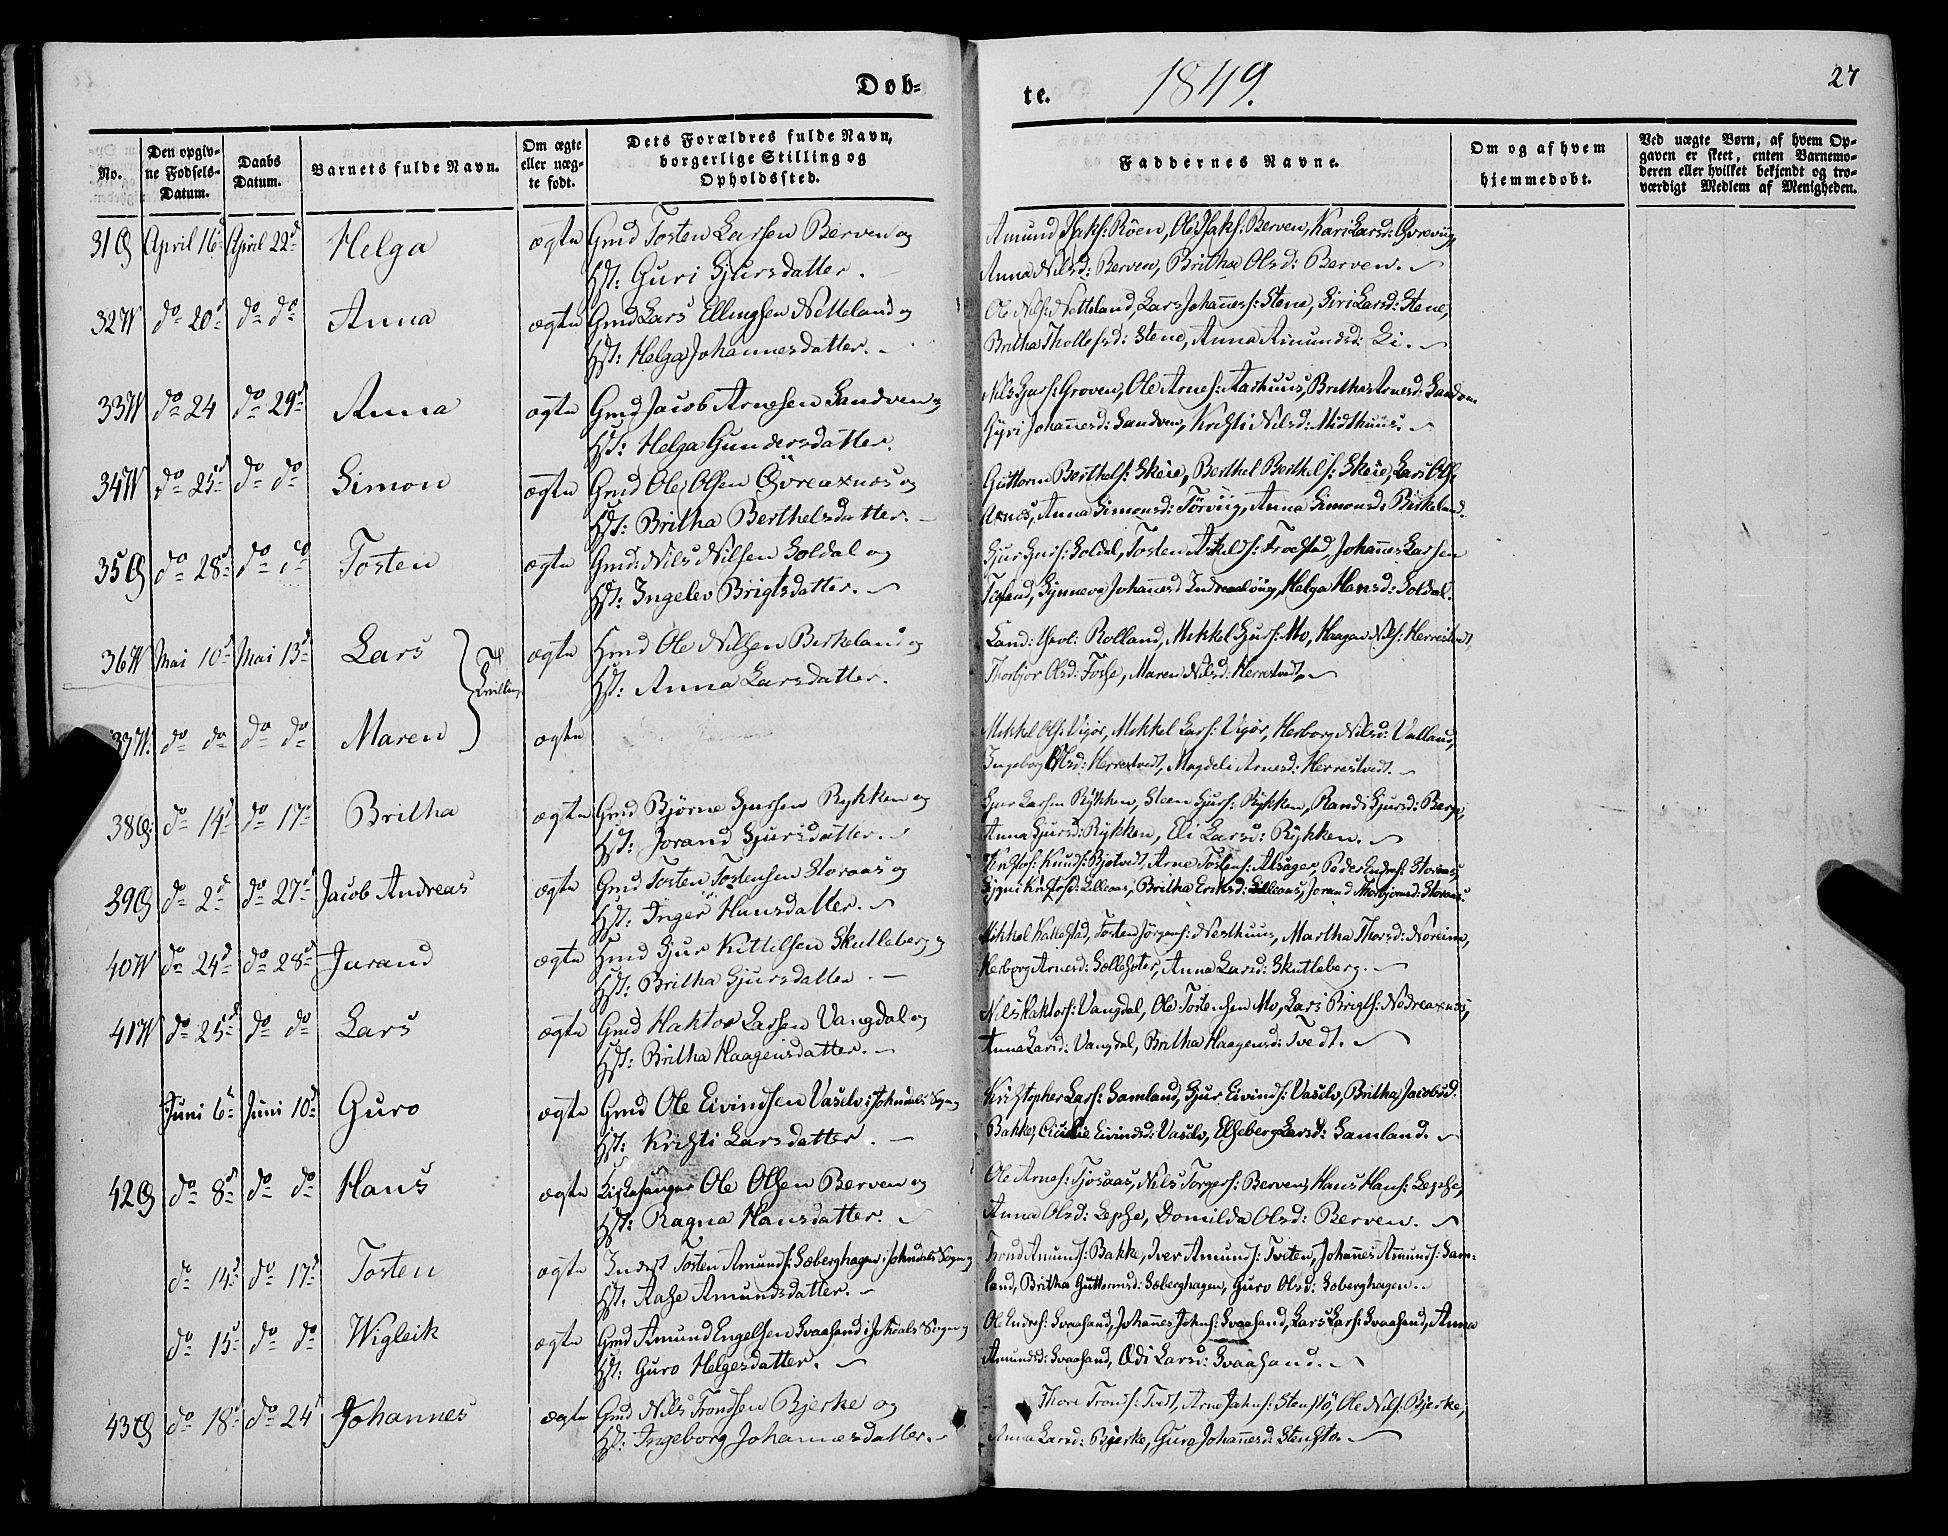 Døb-
te.
1849.
27
No.
Den opgiv-
ne Fødsels-
Datum.
Daabs
Datum.
Barnets fulde Navn.
Om ægte
eller uæg-
te født.
Dets Forældres fulde Navn,
borgerlige Stilling og
Opholdssted.
Faddernes Navne.
Om og af hvem
hjemmedøbt.
Ved uægte Børn, af hvem Op-
gaven er skeet, enten Barnemo-
deren eller hvilket bekjendt og tro-
værdigt Medlem af Menigheden.
31 April 16 April 22 Helga ægte Gmd Tosten Larsen Berven og
Hst: Guri Gjursdatter.
Amund Röen, Ole Berven, Kari Larsd:
Anna Nilsd: Berven, Britha Olsd: Berven.
32W do 20 do do Anna ægte Gmd Lars Ellingsen Netteland og
Hst: Helga Johannesdatter.
Ole Nils: Netteland, Lars Johannes: Stene, Siri Larsd: Stene,
Britha Thollefsd: Stene, Anna Amundsd: Li.
33W do 24 do 29 Anna ægte Gmd Jacob Arnesen Sandven og
Hst: Helga Gundersdatter.
Nils Gjurs: Groven, Ole Arnes: Aarhuus, Britha Arnesd: Sandven
Gyri Johannesd: Sandven, Kristi Nilsd: Midthuus.
34W do 25 do do Simon ægte Gmd Ole Olsen Øvrenaxnæs og
Hst: Britha Berthelsdatter.
Guttorm Berthels: Skeie, Berthel Berthels: Skeie, Lars Ols:
Axnes, Anna Simonsd: Törviig, Anna Simonsd: Birkeland.
35 do 28 do do Tosten ægte Gmd: Nils Nilsen Soldal og
Hst: Ingelev Brigtsdatter.
Gjur Gjurs: Soldal, Tosten Askelds: Froestad, Johannes Larsen
Synneva Johannesd Helga Hansd: Soldal.
36W Mai 10 Mai 13 Lars ægte Hmd Ole Nilsen Berkeland og
Hst: Anna Larsdatter.
Rolland, Mikkel Gjurs: Mo, Haagen Nils: Herrestvedt,
Thorbjor Olsd: Fosse, Maren Nilsd: Herrestvedt,
Tvilling
37W. do do do do Maren ægte
Mikkel Ols: Vigør, Mikkel Lars: Vigør, Herborg Nilsd: Valland,
Ingebog Olsd: Herrestvedt, Magdeli Arnesd: Herrestvedt.
38 do 14 do 17 Britha ægte Gmd Bjørne Gjursen Rykken og
Hst: Jorand Gjursdatter.
Gjur Larsen Rykken, Steen Gjurs: Rykken, Randi Gjursd: Berge,
Anna Gjursd: Rykken, Eli Larsd: Rykken.
39 do 2 do 27 Jacob Andreas ægte Gmd Tosten Tostensen Storaas og
Hst: Inger Hansdatter.
Knuds: Bjotvedt, Arne Tostens: Alsager, Peder Endres: Storaas,
Britha Eriksd: Jorand Thorbjornsd: Storaas.
40W do 24 do 28 Jorand ægte Hmd Gjur Kittelsen Skutleberg og
Hst: Britha Gjursdatter.
Mikkel Kattestad, Tosten Jörgens: Nesthuus, Martha Thorsd: Noreim,
Herborg Arnesd: Anna Larsd: Skutleberg.
41W do 25 do do Lars ægte Gmd Haktor Larsen Vangdal og
Hst: Britha Haagensdatter.
Nils Haktors: Vangdal, Ole Tostensen Mo, Lars Brigts: Nedreaxnæs,
Anna Larsd: Vangdal, Britha Haagensd: Tvedt.
Juni 6 Juni 10 Guro ægte Gmd Ole Eivindsen Vaselv i Johndals Sogn og
Hst: Kristi Larsdatter.
Kristopher Lars: Samland, Gjur Eivinds: Vaselv, Britha Jacobsd:
Bakke, Cicilie Eivindsd: Vaselv, Elseberg Larsd: Samland.
42 do 8 do do Hans ægte Kirkesanger Ole Olsen Berven og
Hst: Ragna Hansdatter.
Ole Arnes: Tjosaas, Nils Torgers: Berven, Hans Hans: Lepse,
Anna Olsd: Lepse, Domilda Olsd: Berven.
do 14 do 17 Tosten ægte Inderst Tosten Amunds: Sæberghagen i Johndals Sogn og
Hst: Aase Amundsdatter.
Trond Amunds: Bakke, Iver Amunds: Tveten, Johannes Amunds: Sam-
land, Britha Guttormsd: Sæberghagen, Guro Olsd: Soberghagen.
do 15 do do Wigleik ægte Gmd Amund Engelsen Svaasand i Johdals Sogn og
Hst: Guro Helgesdatter.
Ole Endres: Svaasand, Johannes Johns: Svaasand, Lars Lars: Svaasand, Anna
Amundsd: Svaasand, Ædi Larsd: Svaasand.
43 do 18 do 24 Johannes ægte Gmd Nils Trondsen Bjerke og
Hst: Ingeborg Johannesdatter.
Thore Tronds: Tvedt, Arne Jahns: Stenstö, Ole Nils: Bjerke,
Anna Larsd: Bjerke, Guro Johannesd: Stensto.